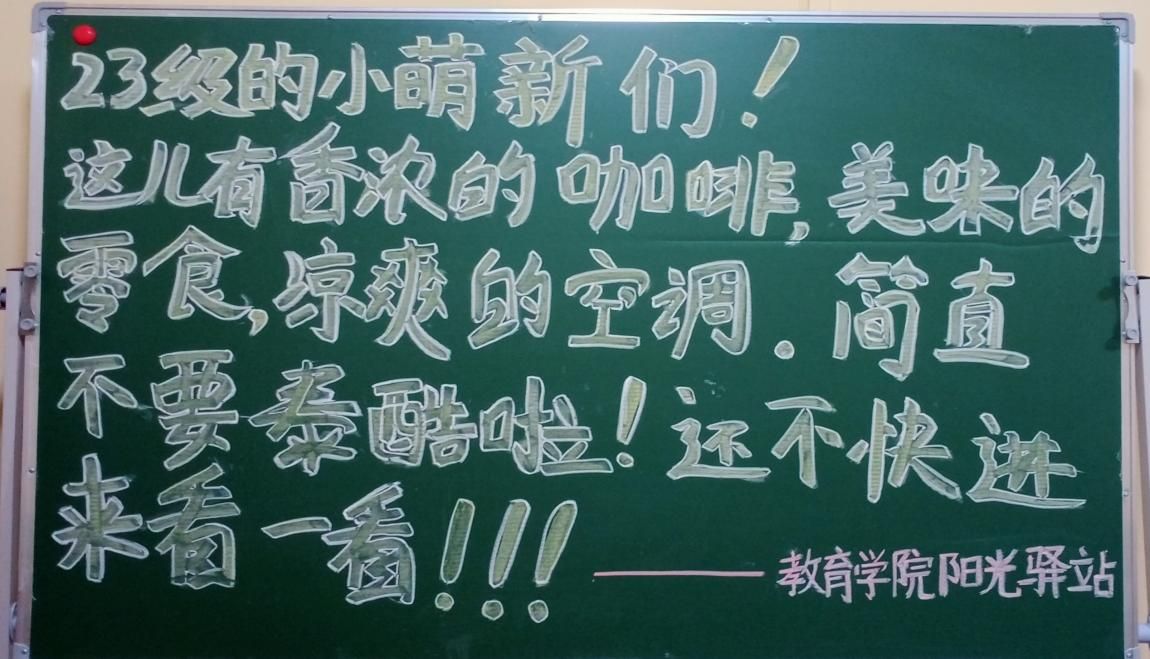 23级的小萌新们！
这儿有香浓的咖啡,美味的
零食,凉爽的空调.简直
不要泰酷啦！还不快进
来看一看!!!
——教育学院阳光驿站